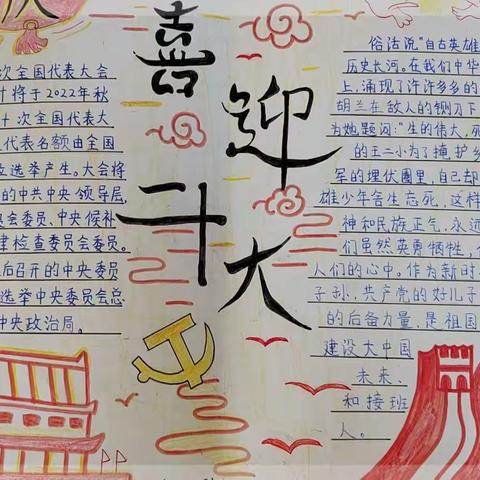 喜迎
二十大
次全国代表大会
计将于2022年秋
十次全国代表大
代表名额由全国
选举产生。大会将
的中共中央领导层,
会委员、中央候补
律检查委员会委员。
后召开的中央委员
选举中央委员会总
中央政治局。
俗话说"自古英雄
历史长河。在我们中华
上,涌现了许许多多的
胡兰在敌人的铡刀下
为她题词:"生的伟大,死
的王二小为了掩护乡
军的埋伏圈里,自己却
雄少年舍生忘死,这样
神和民族正气,永远
们虽然英勇牺牲,
人们的心中。作为新时
子孙,共产党的好儿子
的后备力量,是祖国
建设大中国
未来、
和接班
人。